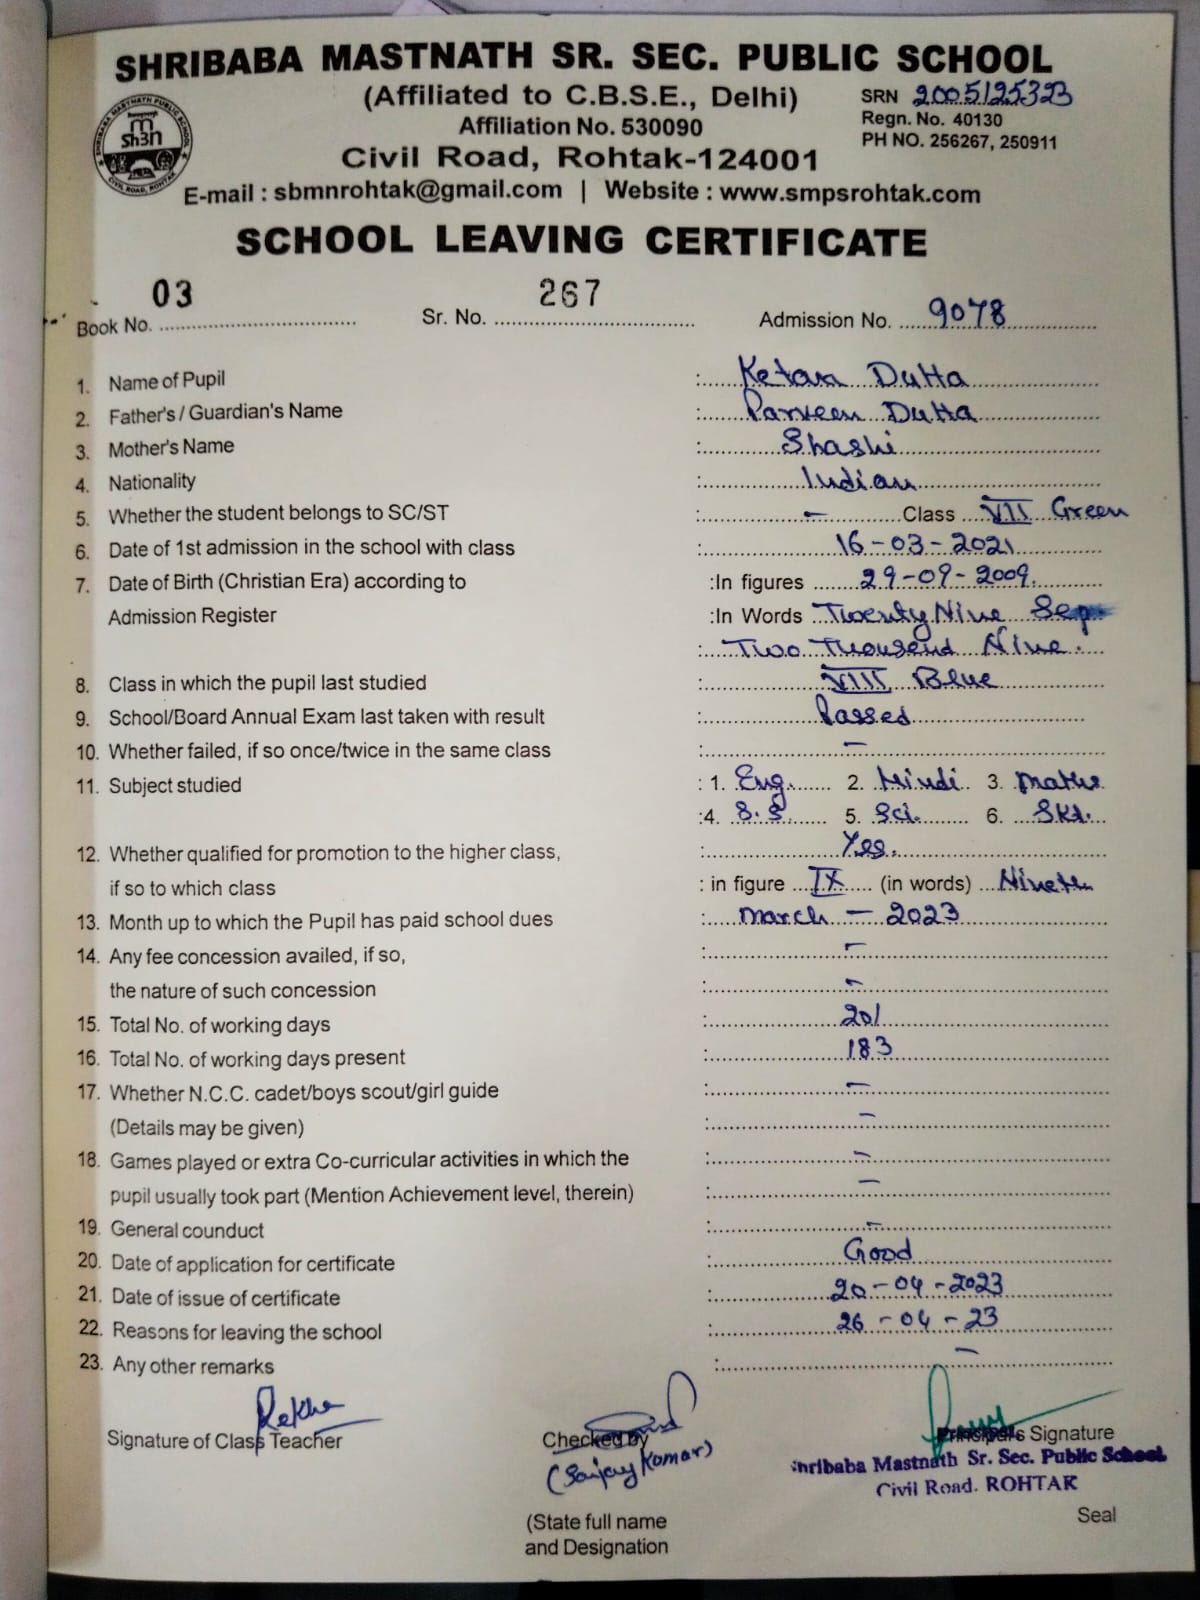 SHRIBABA MASTNATH SR. SEC. PUBLIC SCHOOL
(Affiliated to C.B.S.E., Delhi)
SRN 2005125323
Affiliation No. 530090
Regn. No. 40130
Civil Road, Rohtak-124001
PH NO. 256267, 250911
E-mail : sbmnrohtak@gmail.com | Website : www.smpsrohtak.com
SCHOOL LEAVING CERTIFICATE
Book No. 03 Sr. No. 267 Admission No. 9078
1. Name of Pupil : Ketan Dutta
2. Father's / Guardian's Name : Parveen Dutta
3. Mother's Name : Shashi
4. Nationality : Indian
5. Whether the student belongs to SC/ST : - Class VII Green
6. Date of 1st admission in the school with class : 16-03-2021
7. Date of Birth (Christian Era) according to :In figures 29-09-2009.
Admission Register :In Words Twenty Nine Sep.
: Two Thousend Nine.
8. Class in which the pupil last studied : VIII Blue
9. School/Board Annual Exam last taken with result : Passed
10. Whether failed, if so once/twice in the same class : -
11. Subject studied : 1. Eng. 2. Hindi 3. maths
:4. S.S 5. Sci. 6. Skt.
12. Whether qualified for promotion to the higher class, : Yes.
if so to which class : in figure IX (in words) Nineth
13. Month up to which the Pupil has paid school dues : march - 2023
14. Any fee concession availed, if so, : -
the nature of such concession : -
15. Total No. of working days : 201
16. Total No. of working days present : 183
17. Whether N.C.C. cadet/boys scout/girl guide : -
(Details may be given) : -
18. Games played or extra Co-curricular activities in which the : -
pupil usually took part (Mention Achievement level, therein) : -
19. General counduct : -
20. Date of application for certificate : Good
21. Date of issue of certificate : 20-04-2023
22. Reasons for leaving the school : 26-04-23
23. Any other remarks : -
Rekha
Signature of Class Teacher Checked by Principal's Signature
(Sanjay Kumar)
Shribaba Mastnath Sr. Sec. Public School
Civil Road. ROHTAK
(State full name Seal
and Designation